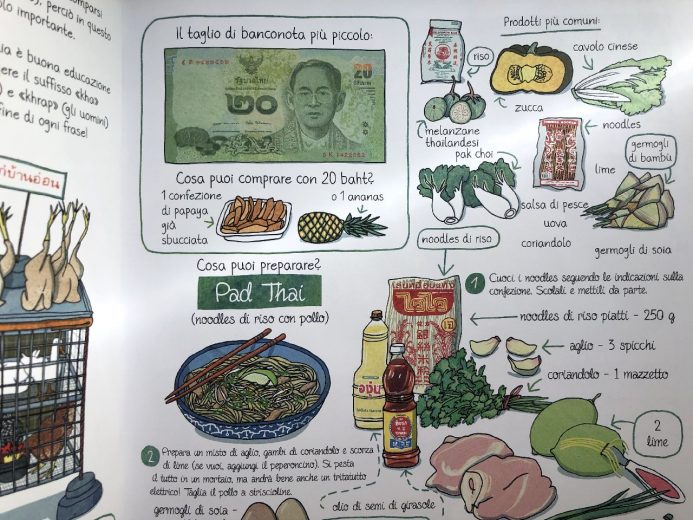 comparsi
perciò in questo
importante.
è buona educazione
il suffisso «kha»
e «khrap» (gli uomini)
fine di ogni frase!
บ้านอ่อน
Il taglio di banconota più piccolo:
รัฐบาลไทย
20
๒๐
Cosa puoi comprare con 20 baht?
1 confezione
di papaya
già
sbucciata
o 1 ananas
Prodotti più comuni:
riso
zucca
cavolo cinese
melanzane
thailandesi
pak choi
noodles
germogli
di bambù
lime
salsa di pesce
uova
coriandolo
germogli di soia
noodles di riso
Cosa puoi preparare?
Pad Thai
(noodles di riso con pollo)
1 Cuoci i noodles seguendo le indicazioni sulla
confezione. Scolali e mettili da parte.
noodles di riso piatti - 250 g
aglio - 3 spicchi
coriandolo - 1 mazzetto
2
lime
2 Prepara un misto di aglio, gambi di coriandolo e scorza
di lime (se vuoi, aggiungi il peperoncino). Si pesta
il tutto in un mortaio, ma andrà bene anche un tritatutto
elettrico! Taglia il pollo a striscioline.
germogli di soia -
olio di semi di girasole